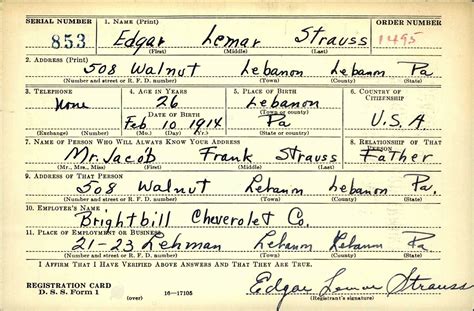 SERIAL NUMBER 1. NAME (Print) ORDER NUMBER
853 Edgar Lemar Strauss 1495
(First) (Middle) (Last)
2. ADDRESS (Print)
508 Walnut Lebanon Lebanon Pa
(Number and street or R. F. D. number) (Town) (County) (State)
3. TELEPHONE 4. AGE IN YEARS 5. PLACE OF BIRTH 6. COUNTRY OF CITIZENSHIP
None 26 Lebanon
DATE OF BIRTH (Town or county)
Feb 10, 1914 Pa U.S.A
(Exchange) (Number) (Mo.) (Day) (Yr.) (State or country)
7. NAME OF PERSON WHO WILL ALWAYS KNOW YOUR ADDRESS 8. RELATIONSHIP OF THAT PERSON
Mr. Jacob Frank Strauss Father
(Mr., Mrs., Miss) (First) (Middle) (Last)
9. ADDRESS OF THAT PERSON
508 Walnut Lebanon Lebanon Pa.
(Number and street or R. F. D. number) (Town) (County) (State)
10. EMPLOYER'S NAME
Brightbill Cheverolet Co.
11. PLACE OF EMPLOYMENT OR BUSINESS
21-23 Lehman Lebanon Lebanon Pa
(Number and street or R. F. D. number) (Town) (County) (State)
I AFFIRM THAT I HAVE VERIFIED ABOVE ANSWERS AND THAT THEY ARE TRUE.
REGISTRATION CARD
D. S. S. Form 1 (over) 16—17105 Edgar Lemar Strauss
(Registrant's signature)